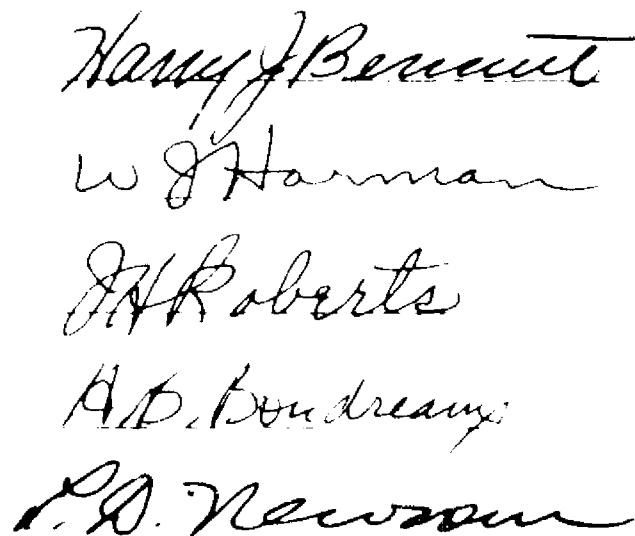 Harry J Bennett
W J Harman
J H Roberts
H. B. Boudreaux
L. D. Newsom